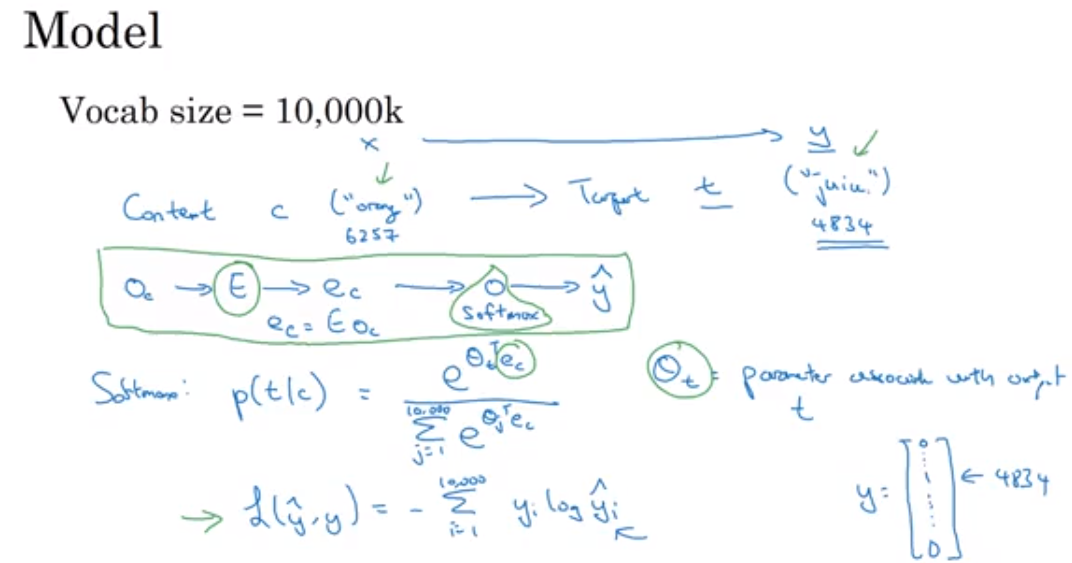 Model
Vocab size = 10,000k
x → y
Content c ("orang") → Target t ("juice")
6257 4834
O_c → E → e_c → O → ŷ
Softmax
e_c = E O_c
Softmax: p(t|c) = e^{θ_t^T e_c} / Σ_{j=1}^{10,000} e^{θ_j^T e_c}
θ_t = parameter associated with output t
L(ŷ, y) = - Σ_{i=1}^{10,000} y_i log ŷ_i
y = [0 ⋮ 1 ⋮ 0] ← 4834